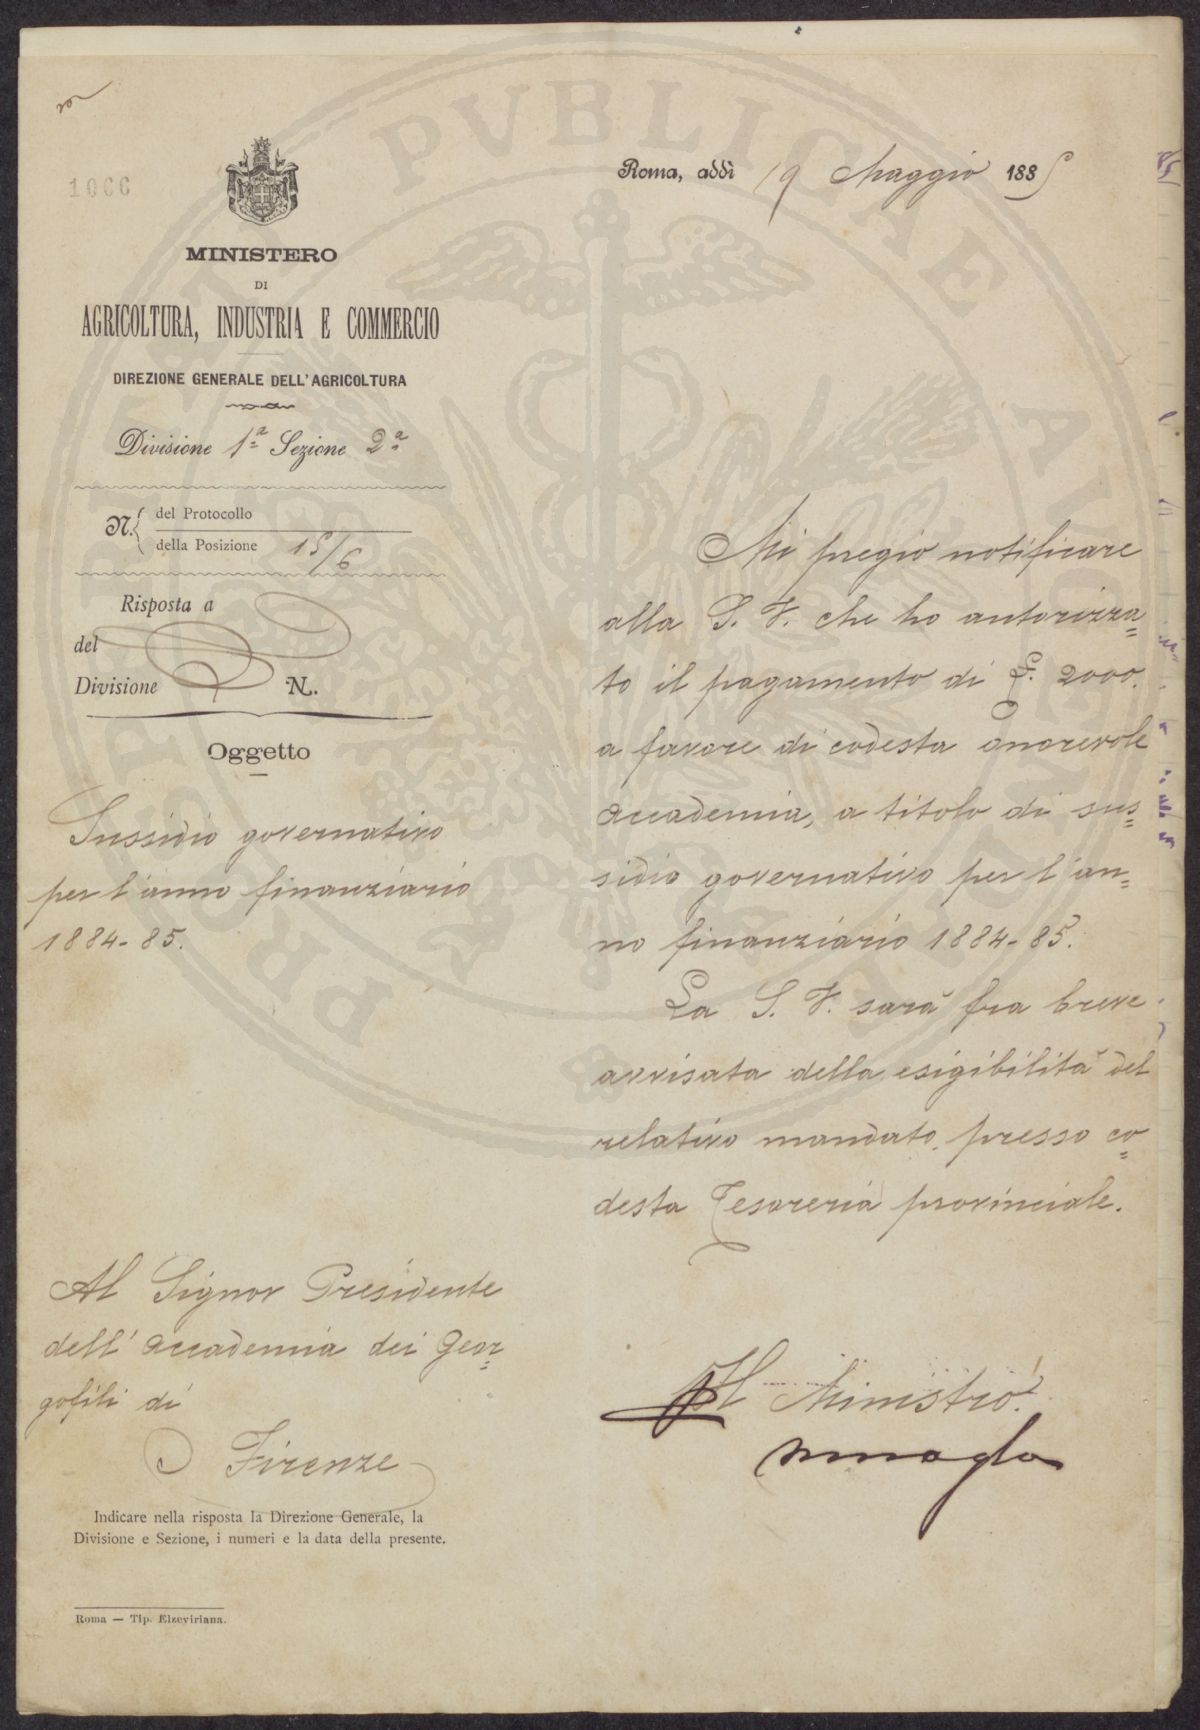 1066
MINISTERO
DI
AGRICOLTURA, INDUSTRIA E COMMERCIO
DIREZIONE GENERALE DELL'AGRICOLTURA
Divisione 1ª Sezione 2ª
N. del Protocollo
della Posizione 15/6
Risposta a
del
Divisione N.
Oggetto
Sussidio governativo
per l'anno finanziario
1884-85.
Al Signor Presidente
dell'Accademia dei Geor-
gofili di
Firenze
Indicare nella risposta la Direzione Generale, la
Divisione e Sezione, i numeri e la data della presente.
Roma — Tip. Elzeviriana.
Roma, addì 19 Maggio 1885
Mi pregio notificare
alla S. V. che ho autorizza=
to il pagamento di L. 2000.
a favore di codesta onorevole
Accademia, a titolo di sus=
sidio governativo per l'an=
no finanziario 1884-85.
La S. V. sarà fra breve
avvisata della esigibilità del
relativo mandato, presso co=
desta Tesoreria provinciale.
Il Ministro
PROPSPERITATI PVBLICAE AVGENDAE